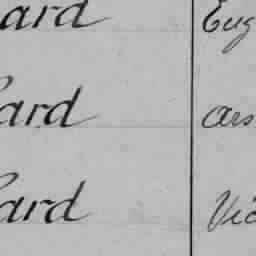 ard Eug
ard Ars
ard Vic